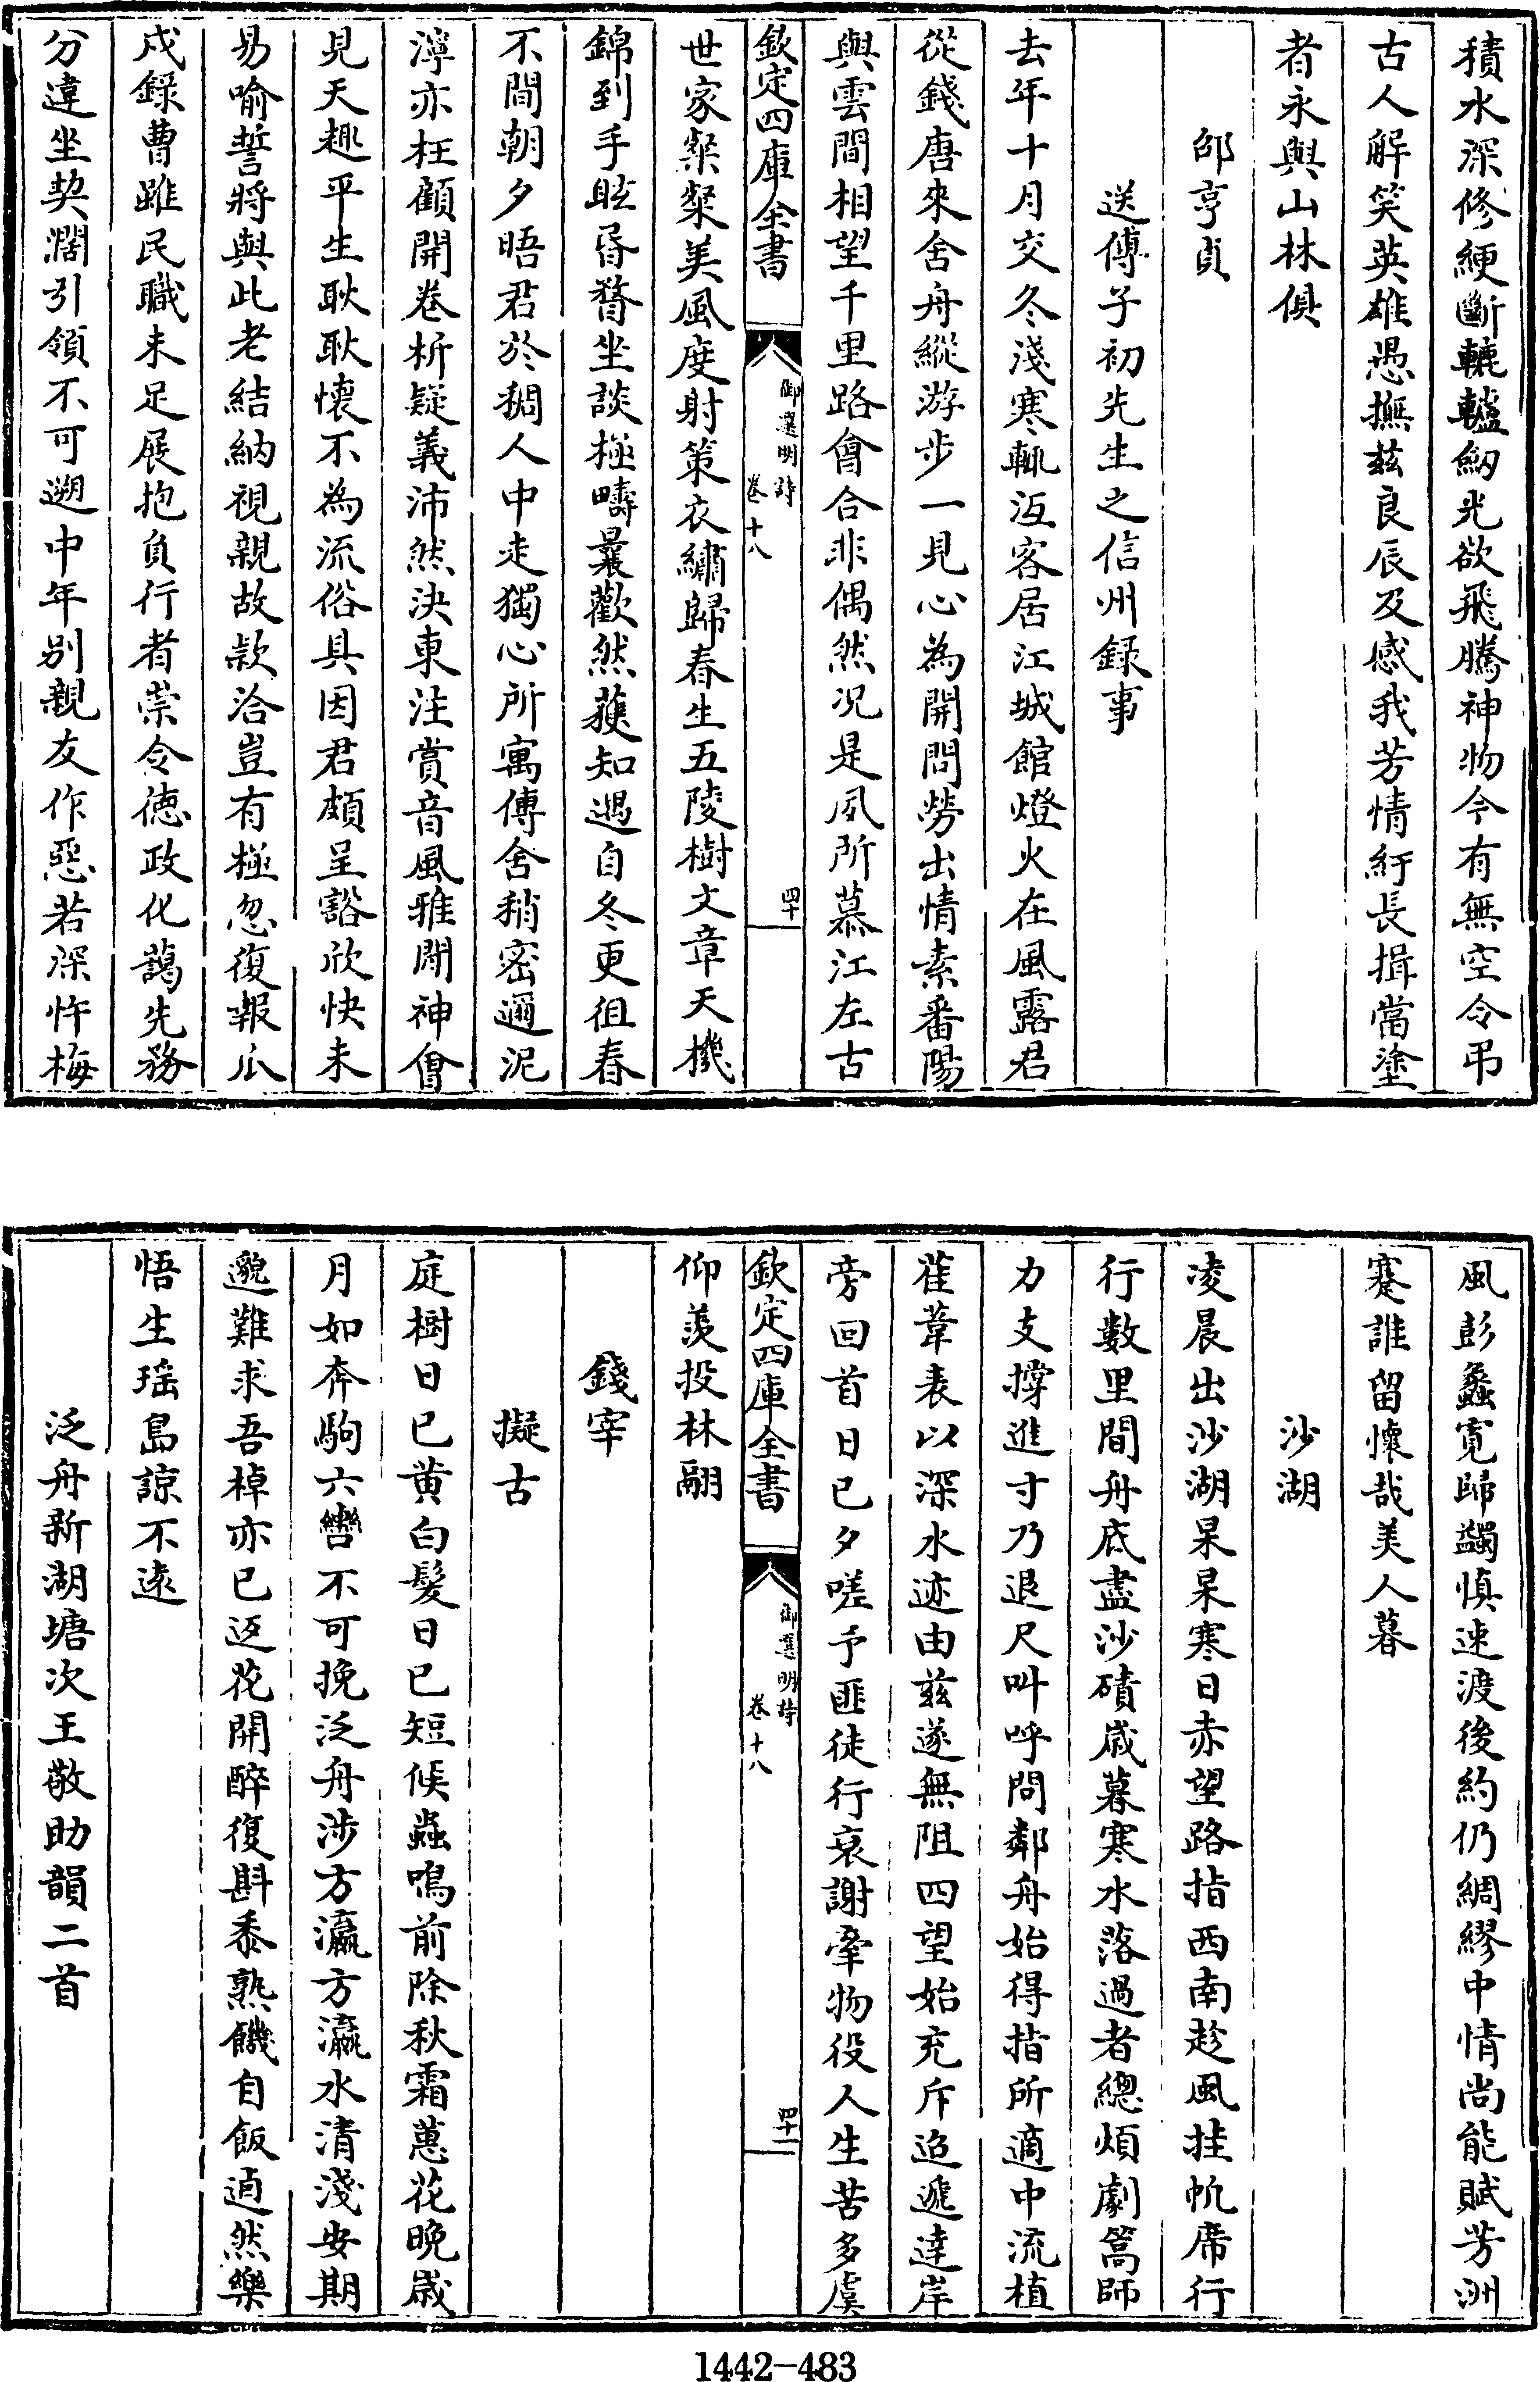 積水深修綆斷轆轤劒光欲飛騰神物今有無空令弔
古人解笑英雄愚撫兹良辰及感我芳情紆長揖當塗
者永與山林俱
邵亨貞
送傅子初先生之信州録事
去年十月交冬淺寒輒沍客居江城館燈火在風露君
從錢唐來舍舟縱游步一見心為開問勞出情素番陽
與雲間相望千里路會合非偶然况是夙所慕江左古
欽定四庫全書
御選明詩
卷十八
四十
世家粲粲美風度射策衣繡歸春生五陵樹文章天機
錦到手眩昏瞀坐談極疇曩歡然蒦知遇自冬更徂春
不間朝夕晤君於稠人中走獨心所寓傅舍稍密邇泥
濘亦枉顧開卷析疑義沛然決東注賞音風雅閒神會
見天趣平生耿耿懷不為流俗具因君頗呈豁欣快未
易喻誓將與此老結納視親故欵洽豈有極忽復報瓜
戍録曹雖民職未足展抱負行者崇令徳政化藹先務
分違坐契濶引領不可遡中年别親友作惡若深忤梅
風彭蠡寛歸蠲慎速渡後約仍綢繆中情尚能賦芳洲
蹇誰留懷哉美人暮
沙湖
凌晨出沙湖杲杲寒日赤望路指西南趁風挂帆席行
行數里間舟底盡沙磧歲暮寒水落過者總煩劇篙師
力支撑進寸乃退尺叫呼問鄰舟始得指所適中流植
萑葦表以深水迹由兹遂無阻四望始充斥迢遞達岸
旁回首日已夕嗟予匪徒行哀謝牽物役人生苦多虞
欽定四庫全書
御選明詩
卷十八
四十一
仰羨投林翮
錢宰
擬古
庭樹日已黄白髮日已短候蟲鳴前除秋霜蕙花晩歲
月如奔駒六轡不可挽泛舟涉方瀛方瀛水清淺安期
邈難求吾棹亦已返花開醉復斟黍熟饑自飯逌然樂
悟生瑶島諒不逺
泛舟新湖塘次王敬助韻二首
1442-483